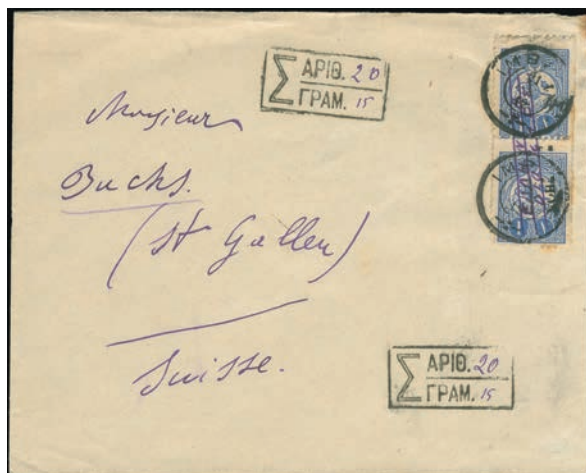 Σ ΑΡΙΘ. 20
ΓΡΑΜ. 15
Monsieur
Buchs.
(St Gallen)
Suisse.
Σ ΑΡΙΘ. 20
ΓΡΑΜ. 15